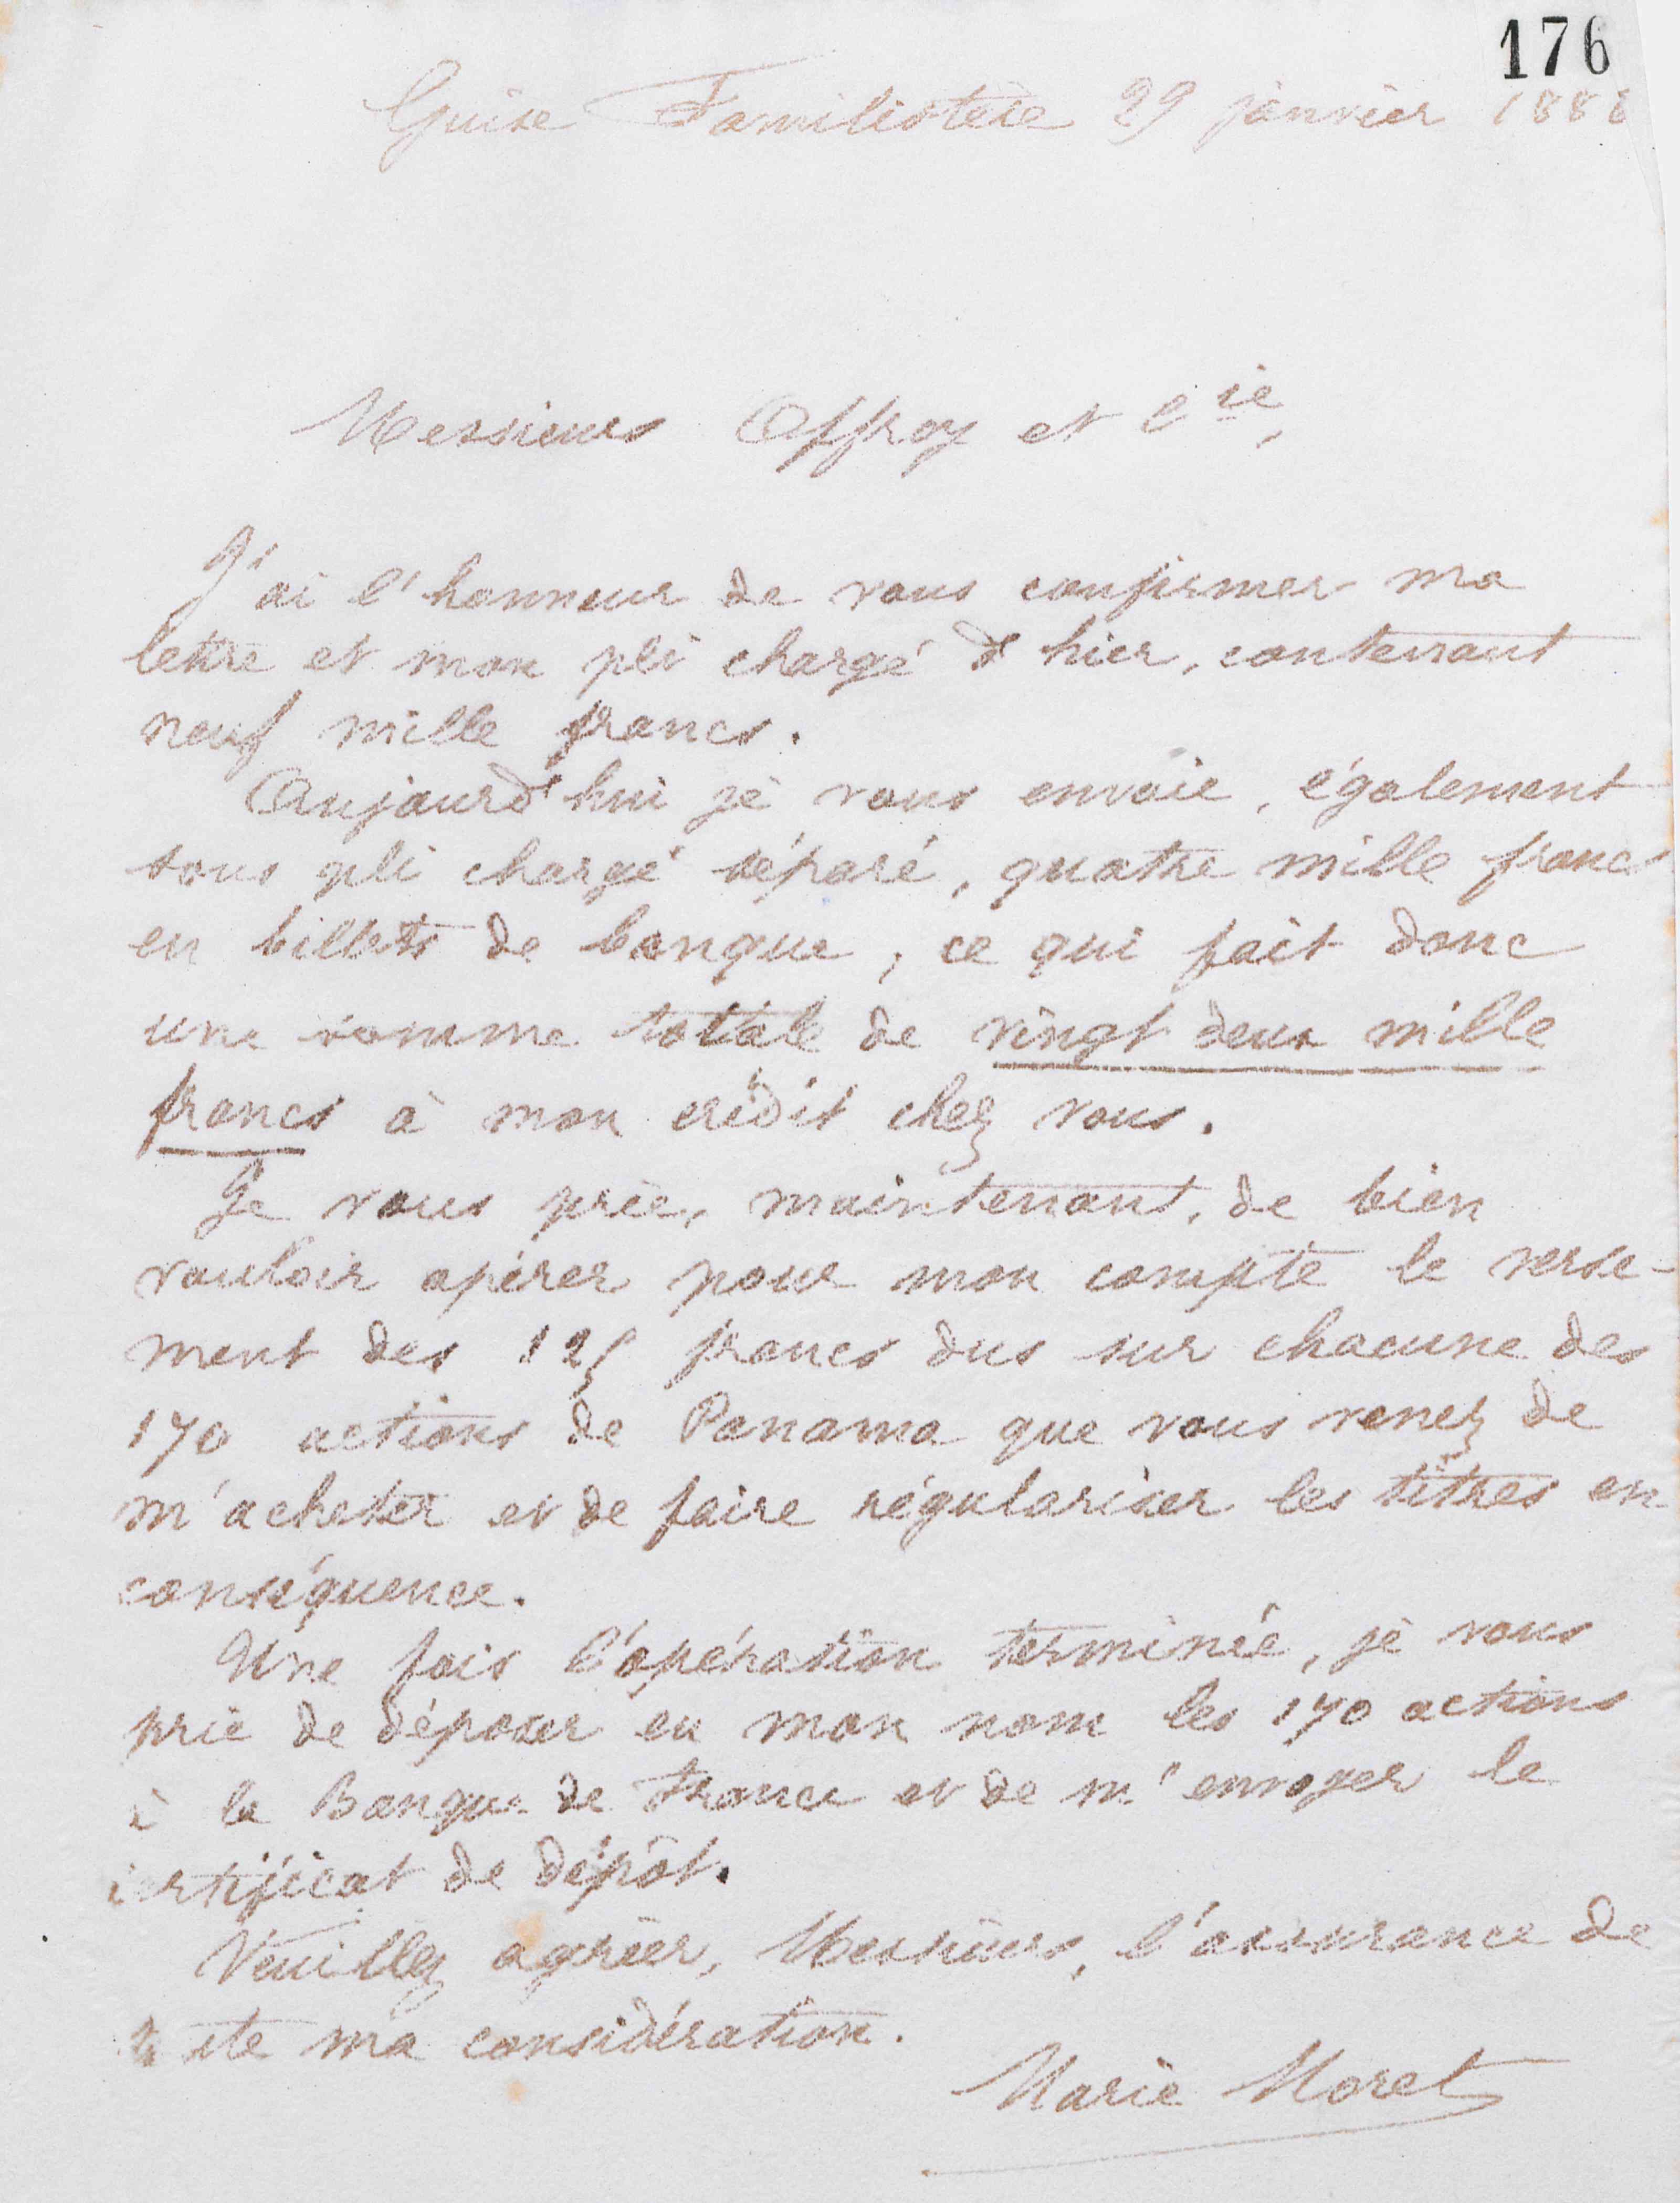 176
Guise Familistère 29 janvier 1888
Messieurs Affroy et Cie,
J'ai l'honneur de vous confirmer ma
lettre et mon pli chargé d'hier, contenant
neuf mille francs.
Aujourd'hui je vous envoie, également
sous pli chargé séparé, quatre mille francs
en billets de banque, ce qui fait donc
une somme totale de vingt deux mille
francs à mon crédit chez vous.
Je vous prie, maintenant, de bien
vouloir opérer pour mon compte le verse-
ment des 125 francs dus sur chacune des
170 actions de Panama que vous venez de
m'acheter et de faire régulariser les titres en
conséquence.
Une fois l'opération terminée, je vous
prie de déposer en mon nom les 170 actions
à la Banque de France et de m'envoyer le
certificat de dépôt.
Veuillez agréer, Messieurs, l'assurance de
toute ma considération.
Marie Moret